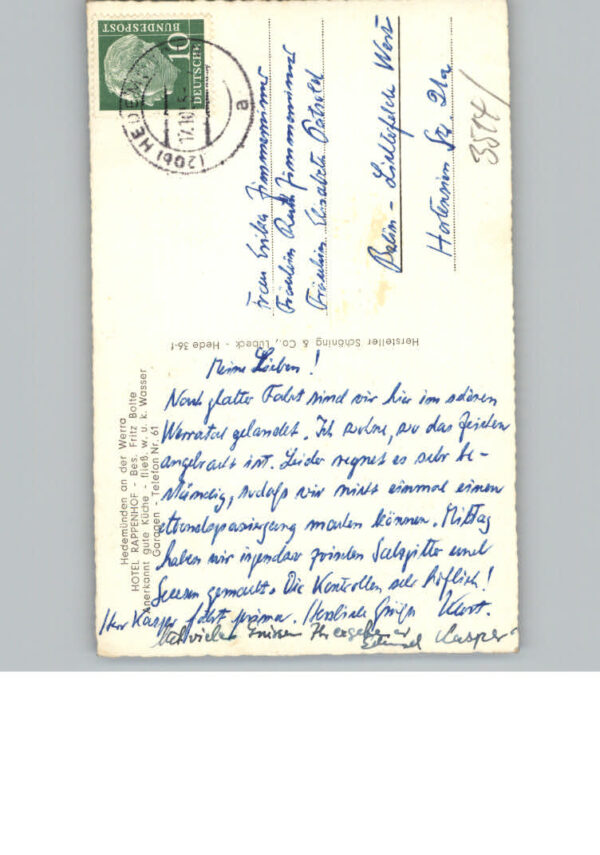 DEUTSCHE
BUNDESPOST
10
(20b) HEDEM
17.10.
a
Frau Erika Zimmermann
Fräulein Ruth Zimmermann
Fräulein Elisabeth
Berlin - Lichterfelde West
Hortensien Str. 21a
3514/
Hersteller Schöning & Co., Lübeck - Hede 36-f
Hedemünden an der Werra
HOTEL RAPPENHOF - Bes. Fritz Bolte
Anerkannt gute Küche - fließ. w. u. k. Wasser
Garagen - Telefon Nr. 61
Meine Lieben!
Nach glatter Fahrt sind wir hier im schönen
Werratal gelandet. Ich wohne, wo das Zeichen
angebracht ist. Leider regnet es sehr be-
ständig, sodaß wir nicht einmal einen
Abendspaziergang machen können. Mittag
haben wir irgendwo zwischen Salzgitter und
Seesen gemacht. Die Kontrollen sehr höflich!
Herr Kasper fährt prima. Herzliche Grüße Kurt.
Mit vielen Grüssen Ihr ergebener
Kasper